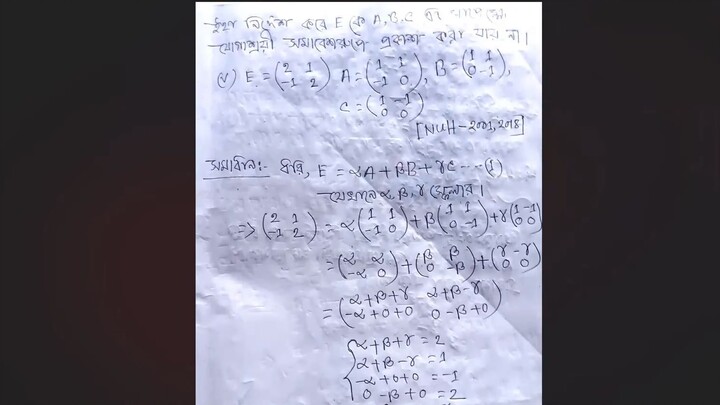 নির্দেশ করে E কে A, B, C এর সাপেক্ষে
যোগাশ্রয়ী সমাবেশরূপে প্রকাশ করা যায় না।
(v) E = (2 1 -1 2) A = (1 1 -1 0), B = (1 1 0 -1),
C = (1 -1 0 0)
[NUH-2001, 2018]
সমাধানঃ- ধরি, E = αA + βB + γC ---- (1)
যেখানে α, β, γ স্কেলার।
=> (2 1 -1 2) = α(1 1 -1 0) + β(1 1 0 -1) + γ(1 -1 0 0)
= (α α -α 0) + (β β 0 -β) + (γ -γ 0 0)
= (α+β+γ α+β-γ -α+0+0 0-β+0)
α+β+γ = 2
α+β-γ = 1
-α+0+0 = -1
0-β+0 = 2